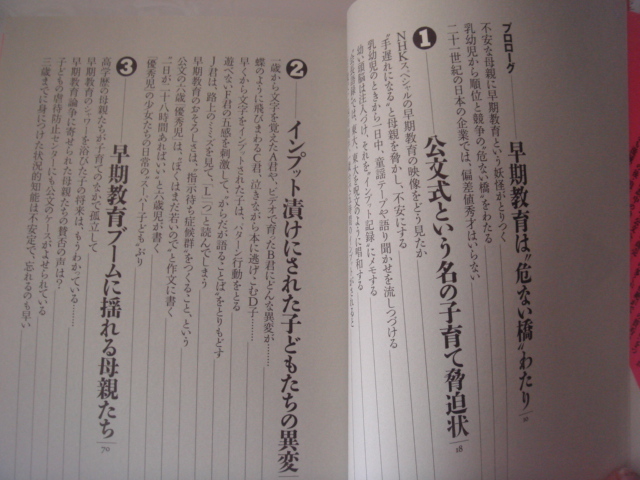 プロローグ 早期教育は"危ない橋"わたり 10
不安な母親に早期教育という妖怪がとりつく
乳幼児から順位と競争の"危ない橋"をわたる
二十一世紀の日本の企業では、偏差値秀才はいらない
1 公文式という名の子育て脅迫状 18
NHKスペシャルの早期教育の映像をどう見たか
"手遅れになる"と母親を脅かし、不安にする
乳幼児のときから一日中、童謡テープや語り聞かせを流しつづける
幼い頭脳は注入づけ、それを"インプット記録"にメモする
東大、東大を呪文のように唱和する
2 インプット漬けにされた子どもたちの異変
一歳から文字を覚えたA君や、ビデオで育ったB君にどんな異変が……
蝶のように飛びまわるC君、泣きながら本に逃げこむD子……
早くから文字をインプットされた子は、パターン行動をとる
遊べないF君の五感を刺激して、"からだが語ることば"をとりもどす
J君は、路上のミミズを見て、「L(一つ)」と読んでしまう
早期教育のおそろしさは、"指示待ち症候群"をつくること、という
「一日が、二十八時間あればいい」と六歳児が書く
公文の六歳"優秀児"は、"ぼくはまだ若いので"と作文に書く
"優秀児"の少女たちの日常の"スーパー子ども"ぶり
3 早期教育ブームに揺れる母親たち 70
高学歴の母親たちが子育てのなかで孤立して
早期教育のシャワーを浴びた子の将来は、もうわかっている……
早期教育論争に寄せられた母親たちの賛否の声は?
子どもの虐待防止センターにも公文のケースがよせられている
三歳までに身につけた状況的知能は不安定で、忘れるのも早い